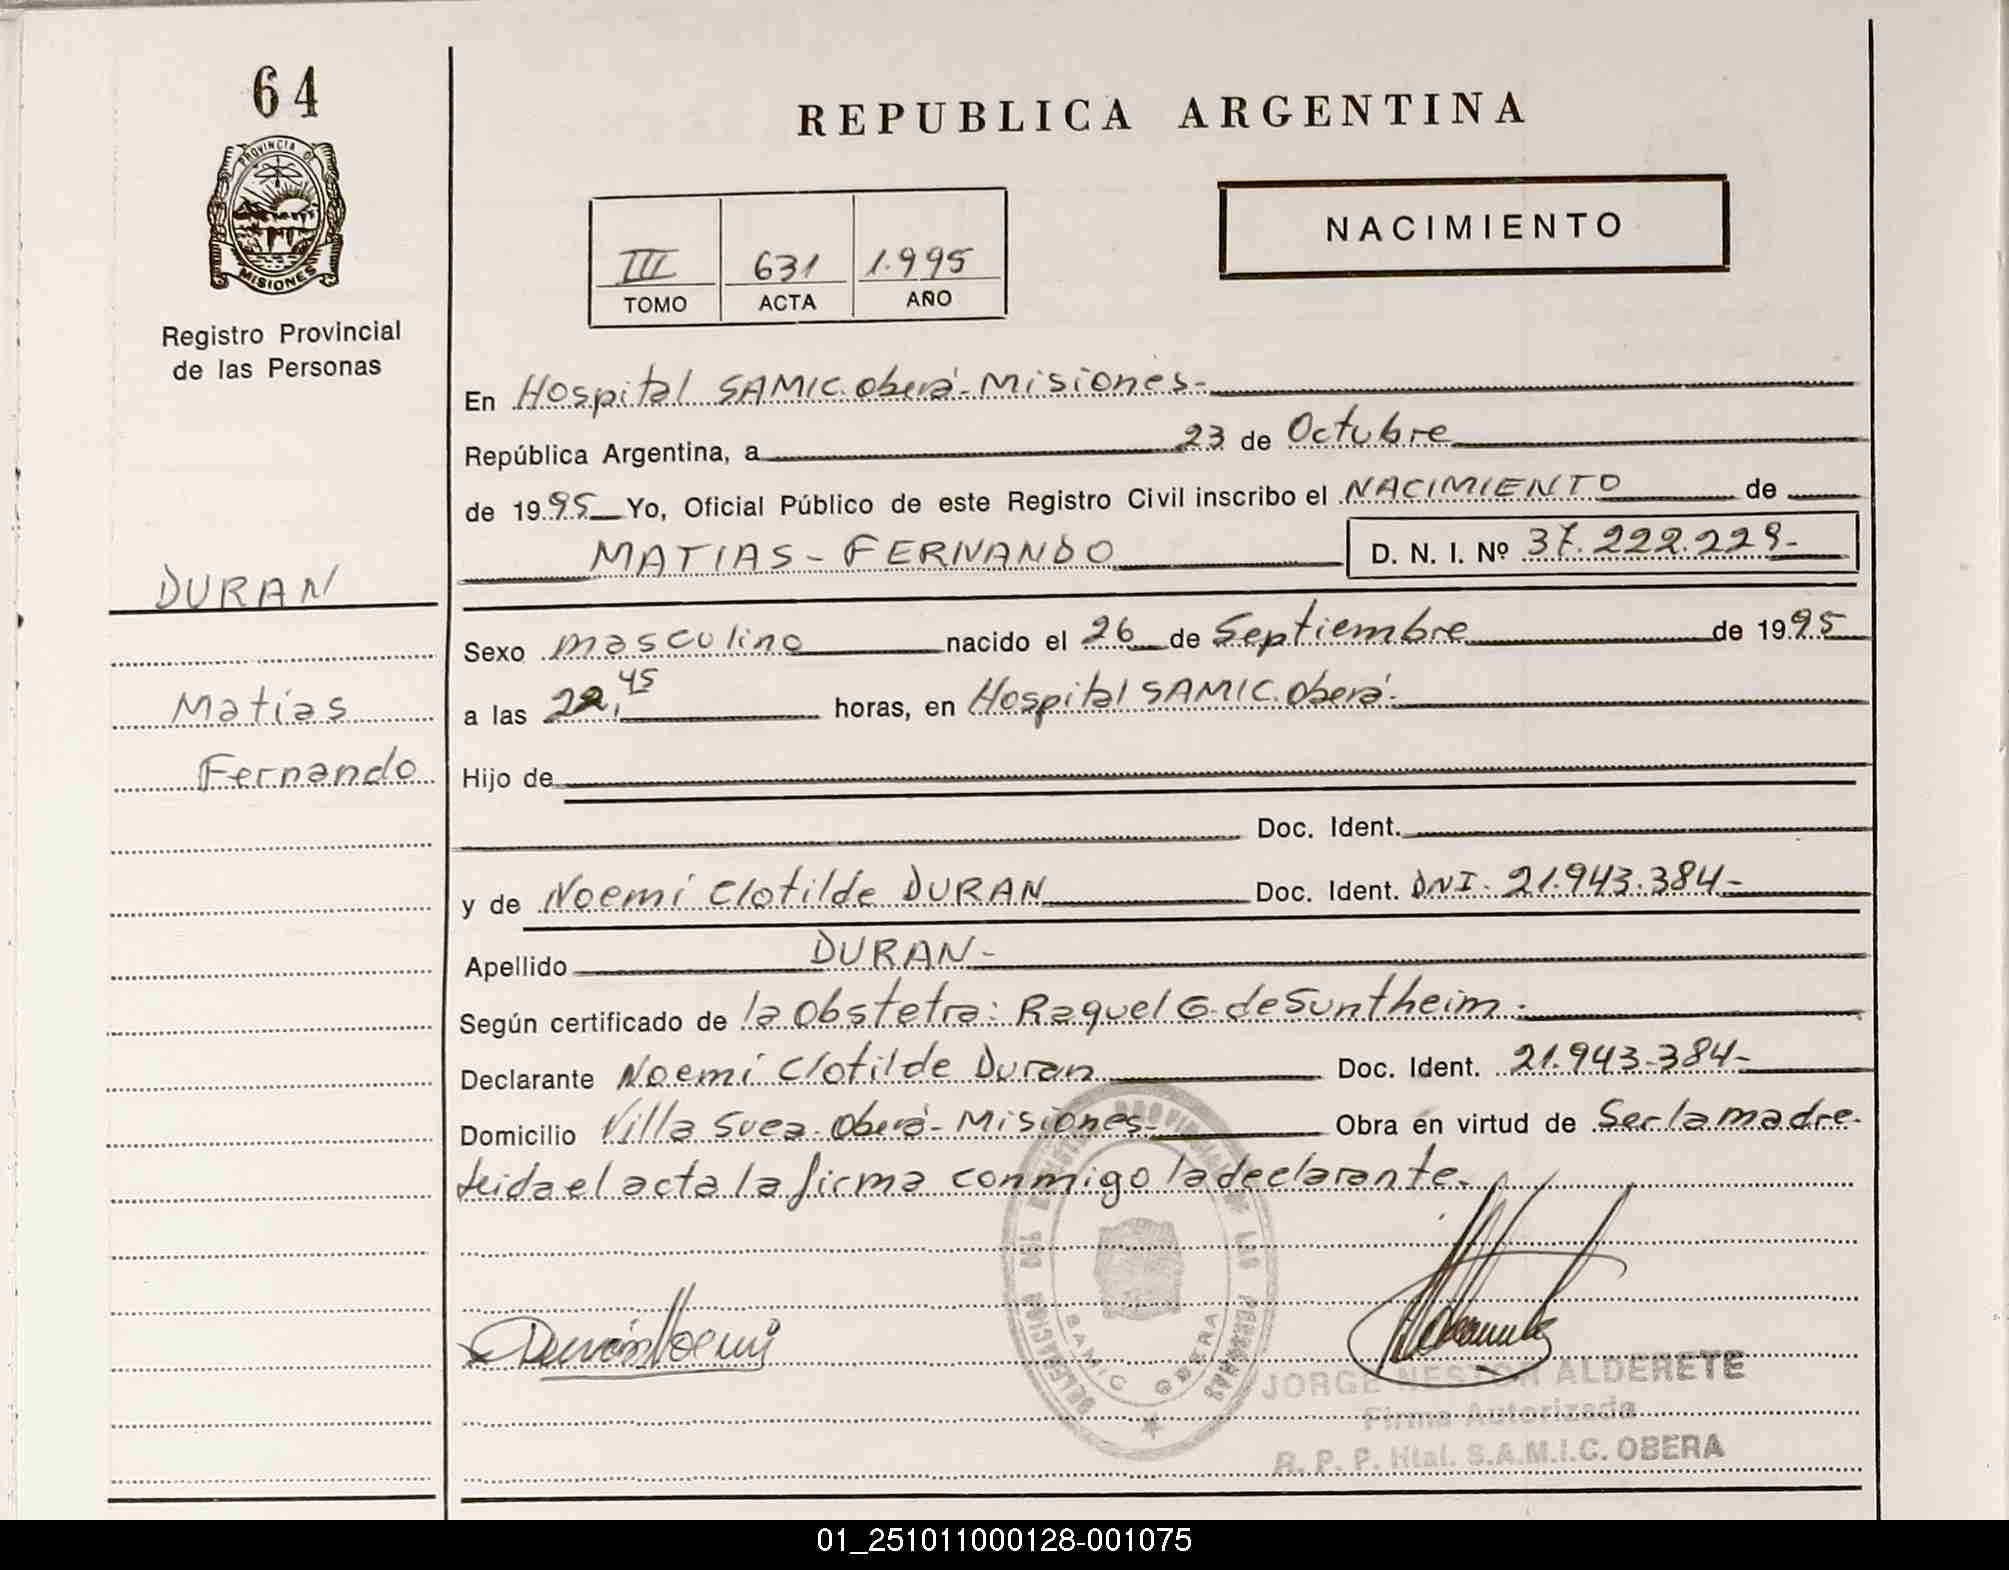 64
PROVINCIA DE
MISIONES
Registro Provincial
de las Personas
DURAN
Matias
Fernando
REPUBLICA ARGENTINA
NACIMIENTO
III 631 1.995
TOMO ACTA AÑO
En Hospital SAMIC. Oberá - Misiones -
República Argentina, a 23 de Octubre
de 1995 Yo, Oficial Público de este Registro Civil inscribo el NACIMIENTO de
MATIAS - FERNANDO D. N. I. Nº 37.222.229 -
Sexo masculino nacido el 26 de Septiembre de 1995
a las 22,45 horas, en Hospital SAMIC. Oberá -
Hijo de
Doc. Ident.
y de Noemí Clotilde DURAN Doc. Ident. DNI. 21.943.384 -
Apellido DURAN -
Según certificado de la Obstetra: Raquel G. de Suntheim -
Declarante Noemí Clotilde Duran Doc. Ident. 21.943.384 -
Domicilio Villa Suea - Oberá - Misiones - Obra en virtud de Ser la madre -
leida el acta la firma conmigo la declarante -
Durán Noemi
DELEGACION DEL REGISTRO PROVINCIAL DE LAS PERSONAS
SAMIC OBERA
JORGE NESTOR ALDERETE
Firma Autorizada
R. P. P. Htal. S.A.M.I.C. OBERA
01_251011000128-001075